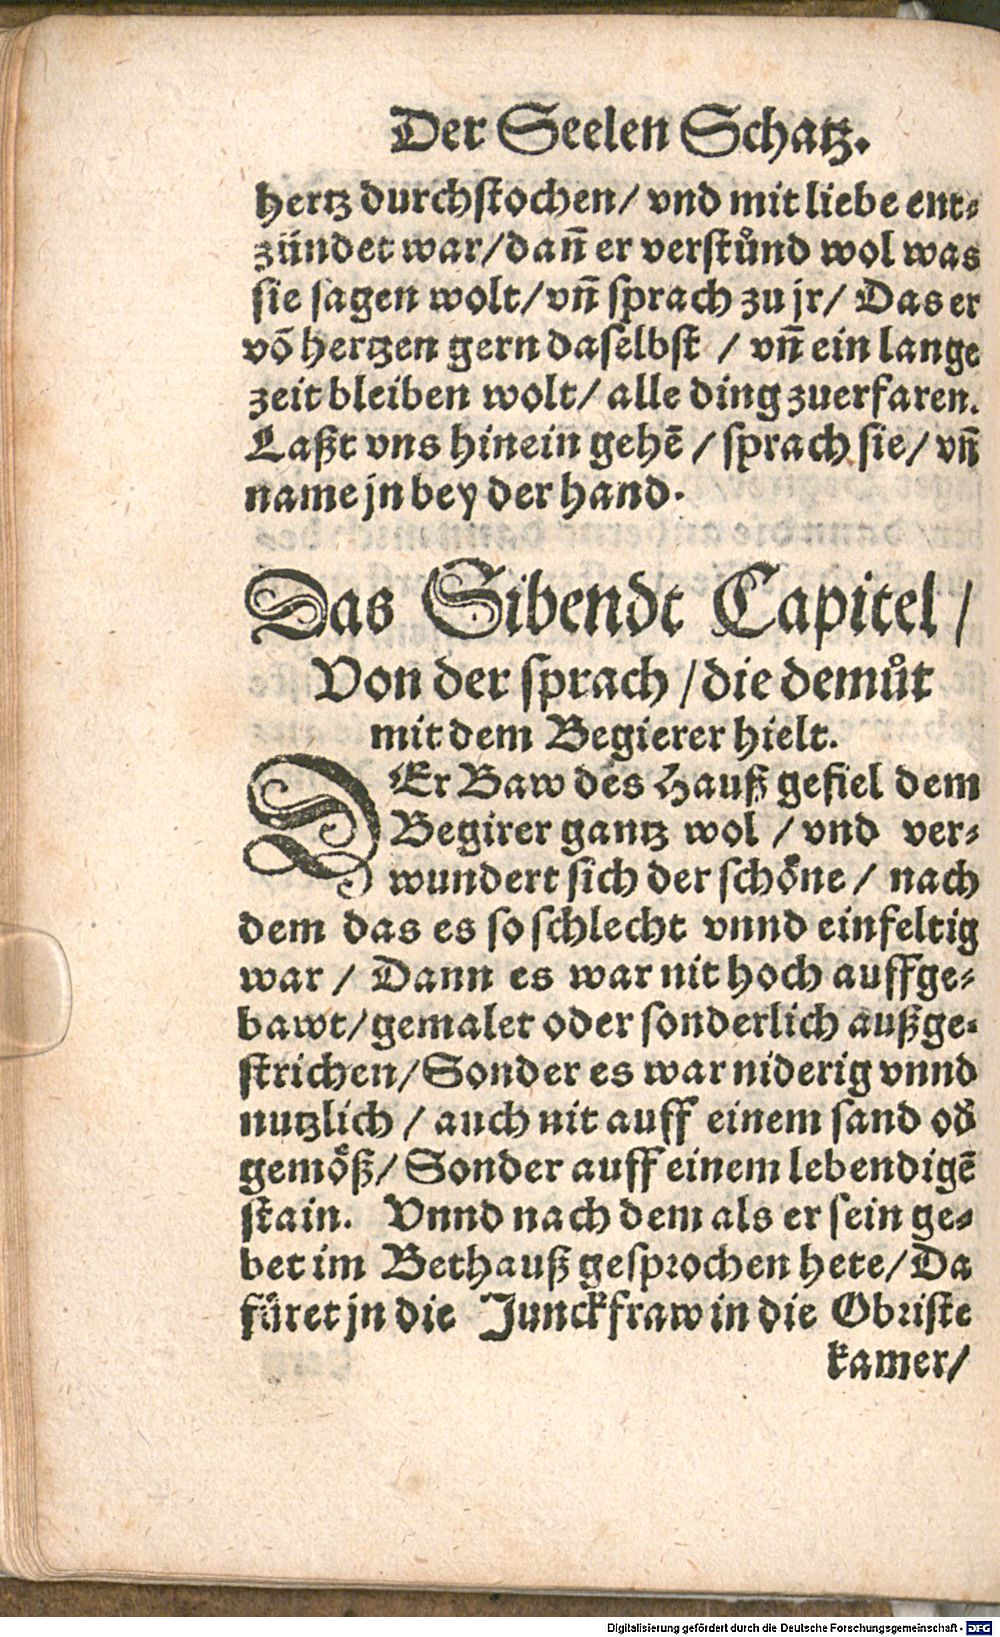 Der Seelen Schatz.
hertz durchstochen/ vnd mit liebe ent⸗
zündet war/dañ er verstůnd wol was
sie sagen wolt/vñ sprach zu jr/ Das er
võ hertzen gern daselbst / vñ ein lange
zeit bleiben wolt/ alle ding zuerfaren.
Laßt vns hinein gehẽ / sprach sie/ vñ
name jn bey der hand.
Das Sibendt Capitel/
Von der sprach /die demůt
mit dem Begierer hielt.
DEr Baw des Hauß gefiel dem
Begirer gantz wol / vnd ver⸗
wundert sich der schöne/ nach
dem das es so schlecht vnnd einfeltig
war / Dann es war nit hoch auffge⸗
bawt/gemalet oder sonderlich außge⸗
strichen/Sonder es war niderig vnnd
nutzlich / auch nit auff einem sand od̕
gemöß/ Sonder auff einem lebendigẽ
stain. Vnnd nach dem als er sein ge⸗
bet im Bethauß gesprochen hete/Da
füret jn die Junckfraw in die Obriste
kamer/
Digitalisierung gefördert durch die Deutsche Forschungsgemeinschaft - DFG